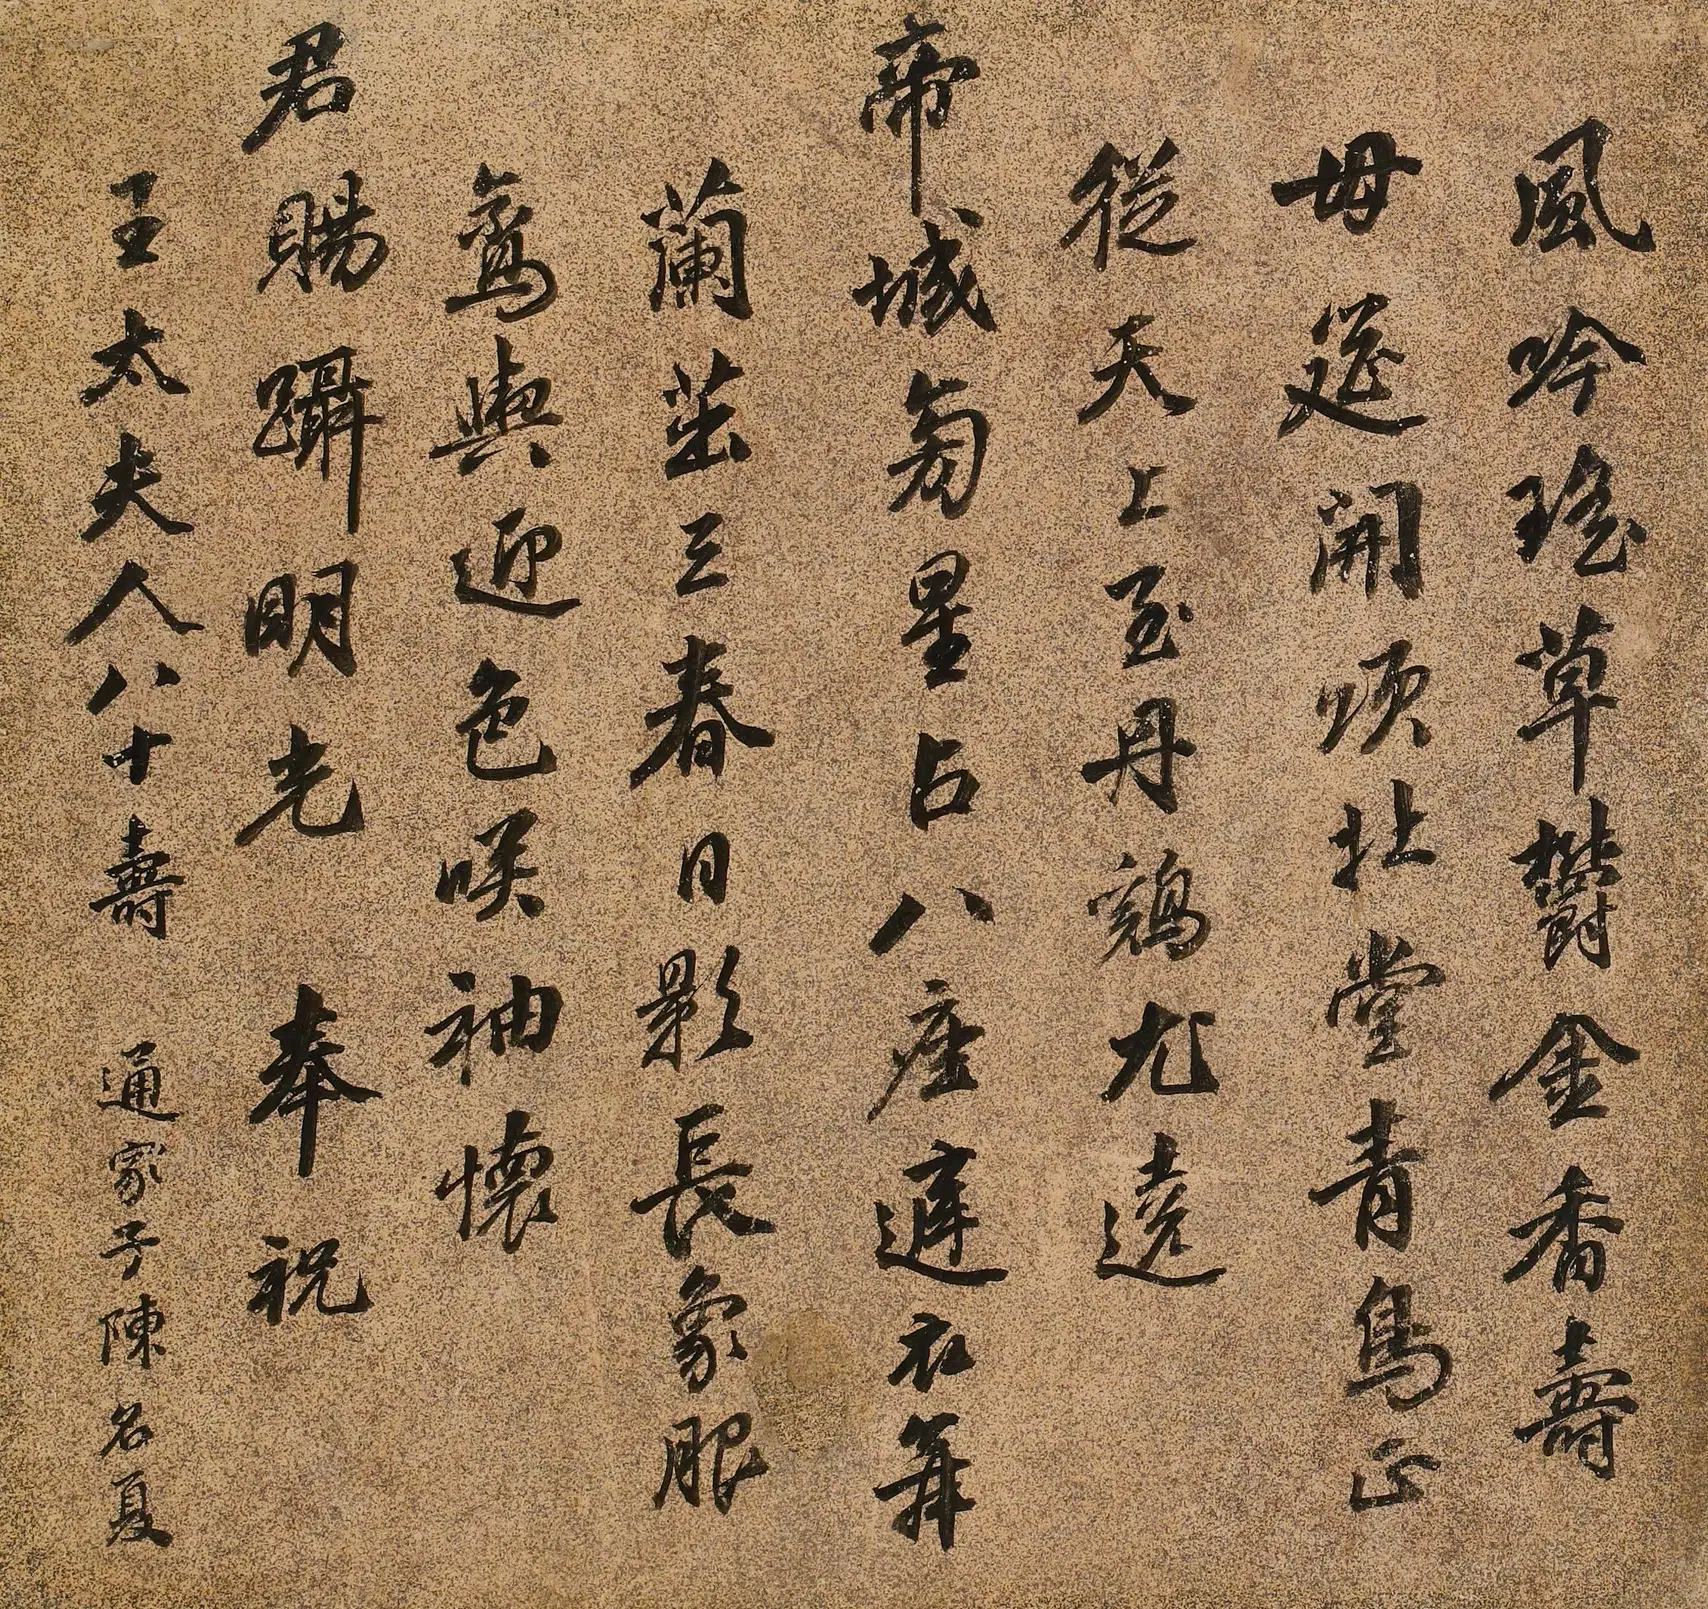 風吟瑤草欝金香壽
母筵開頌北堂青鳥正
從天上至丹鷄尤遶
帝城旁星占八座遲衣舞
蘭茁三春日影長象服
鸞輿迎色咲袖懷
君賜躡明光　奉祝
王太夫人八十壽　通家子陳名夏